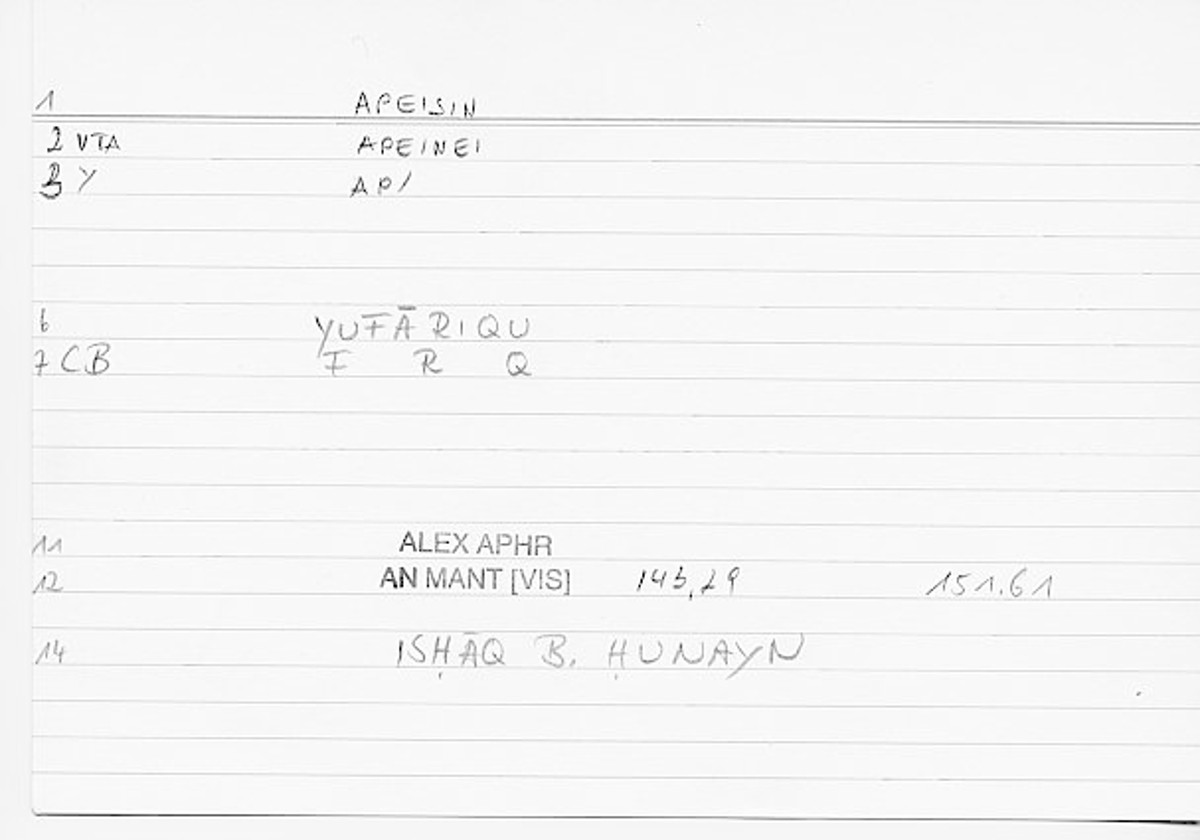 1 APEISIN
2 VTA APEINEI
3 Y AP/
6 YUFĀRIQU
7 CB F R Q
11 ALEX APHR
12 AN MANT [VIS] 143,29 151.61
14 ISḤĀQ B. ḤUNAYN